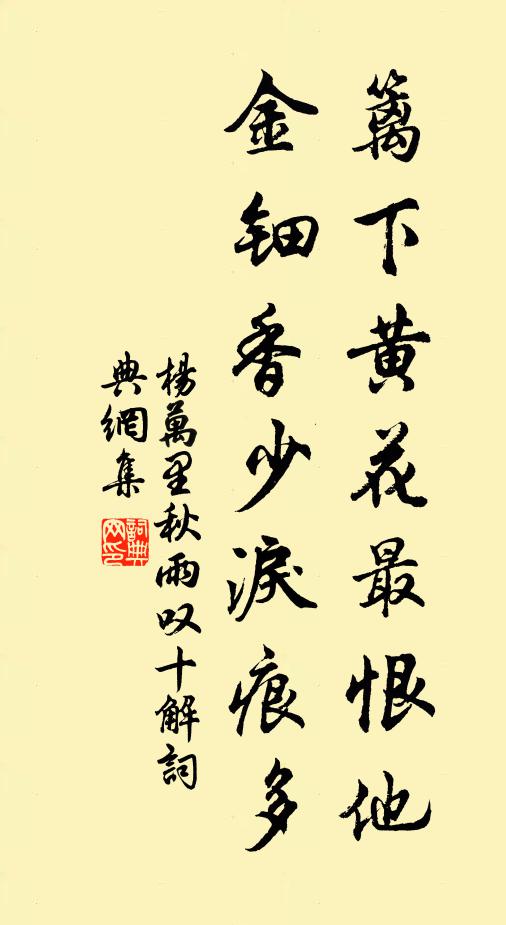 籬下黄花最恨他
金鈿香少淚痕多
楊萬里秋雨叹十解詞
典網集
詞典网印